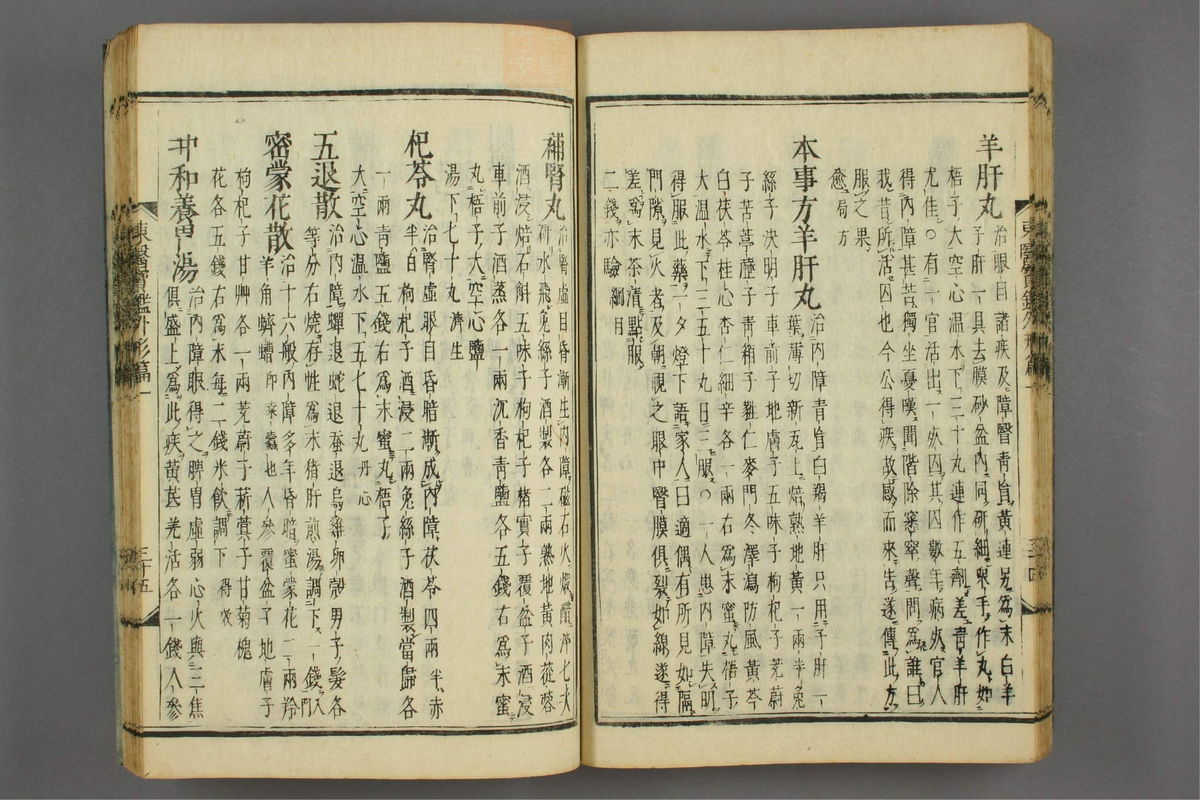 羊肝丸 治眼目諸疾及障瞖青盲黃連另爲末白羊
子肝一具去膜砂盆內同研細衆手作丸如
梧子大空心溫水下三十丸連作五劑差青羊肝
尤佳○有一官活出一㱩囚其囚數年病㱩官人
得內障甚苦獨坐憂嘆聞階除窸窣聲問爲誰曰
我昔所活囚也今公得疾故感而來告遂傳此方
服之果
愈局方
本事方羊肝丸 治內障青盲白羯羊肝只用子肝一
葉薄切新瓦上焙熟地黃一兩半兔
絲子決明子車前子地膚子五味子枸杞子茺蔚
子苦葶藶子青箱子蕤仁麥門冬澤瀉防風黃芩
白茯苓桂心杏仁細辛各一兩右爲末蜜丸梧子
大溫水下三五十丸日三服○一人患內障失明
得服此藥一夕燈下語家人曰適偶有所見如隔
門隙見火者及朝視之眼中瞖膜俱裂如線遂得
差爲末茶清點服
二錢亦驗綱目
東醫寶鑑外形篇一
補腎丸 治腎虛目昏漸生內障磁石火煆醋淬七次
研水飛兔絲子酒製各二兩熟地黃肉蓯蓉
酒浸焙石斛五味子枸杞子楮實子覆盆子酒浸
車前子酒蒸各一兩沉香青鹽各五錢右爲末蜜
丸梧子大空心鹽
湯下七十丸濟生
杞苓丸 治腎虛眼目昏暗漸成內障茯苓四兩半赤
半白枸杞子酒浸二兩兔絲子酒製當歸各
一兩青鹽五錢右爲末蜜丸梧子
大空心溫水下五七十丸丹心
五退散 治內障蟬退蛇退蚕退烏雞卵殼男子髮各
等分右燒存性爲末猪肝煎湯調下一錢入門
密蒙花散 治十六般內障多年昏暗蜜蒙花二兩羚
羊角蠐螬卽也人參覆盆子地膚子
枸杞子甘艸各一兩茺蔚子蔪蓂子甘菊槐
花各五錢右爲末每二錢米飮調下得效
冲和養胃湯 治內障眼得之脾胃虛弱心火與三焦
俱盛上爲此疾黃茋羌活各一錢人參
東醫寶鑑外形篇一
三十五